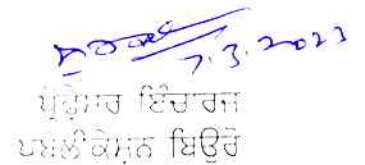 7.3.2023
ਪ੍ਰੋਫੈਸਰ ਇੰਚਾਰਜ
ਪਬਲੀਕੇਸ਼ਨ ਬਿਊਰੋ